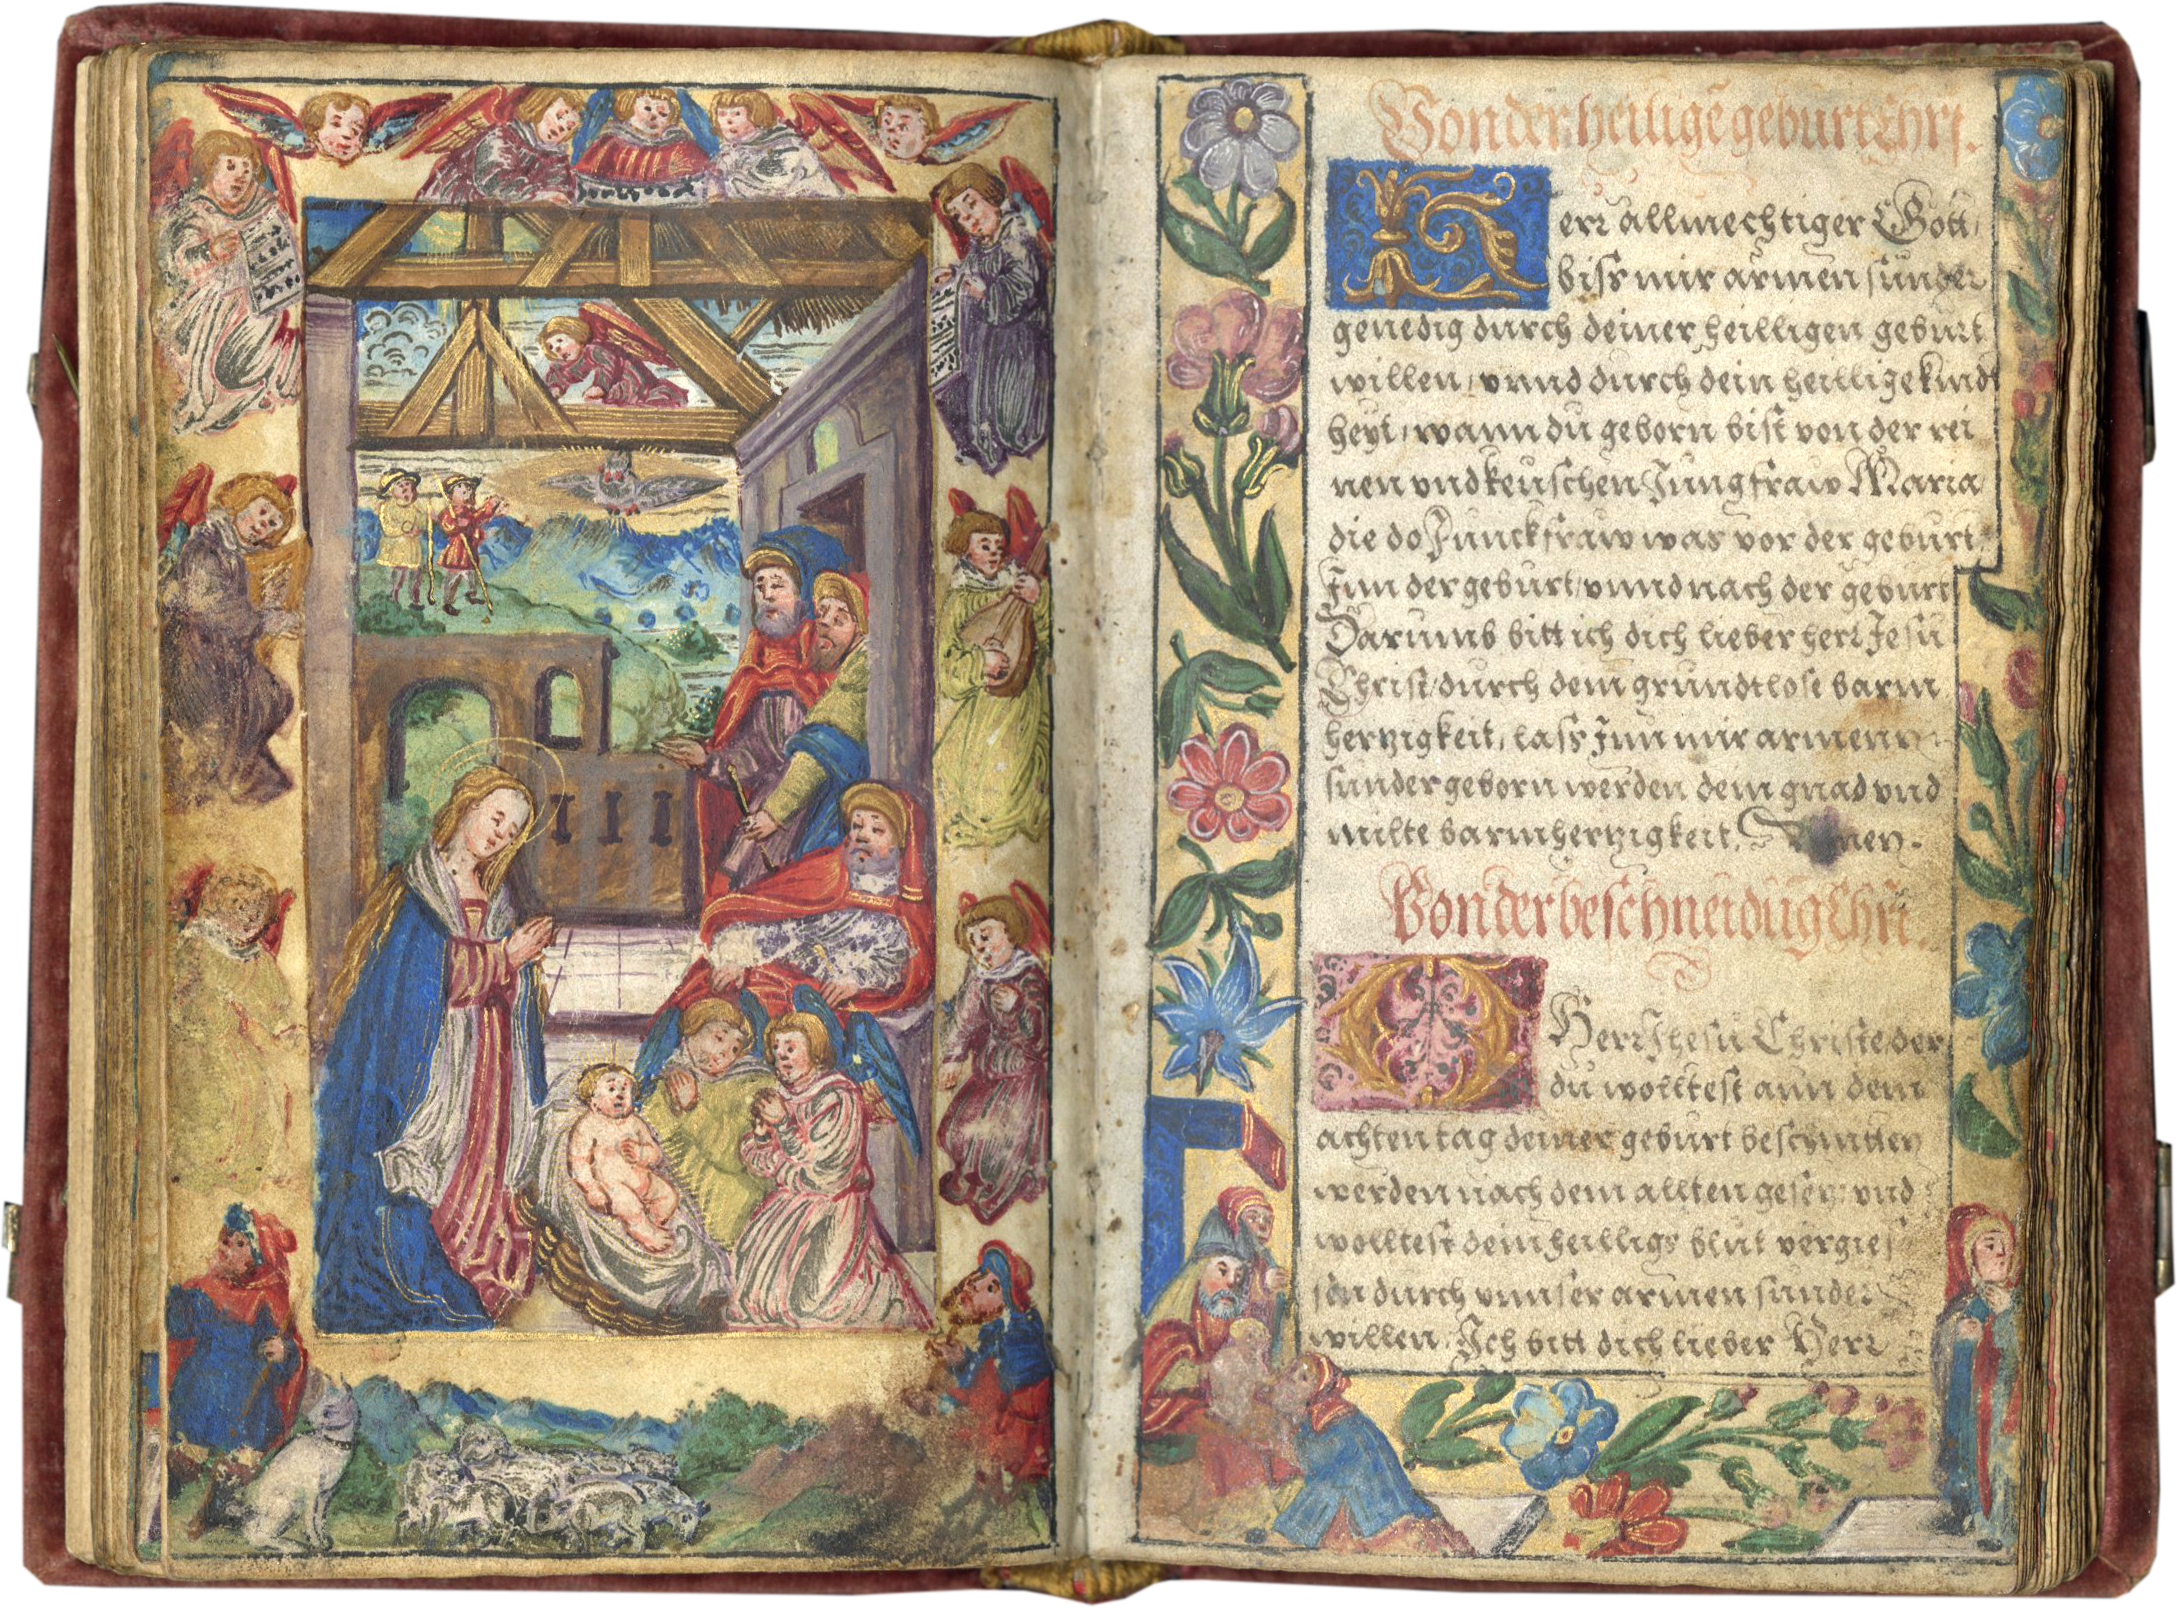 Von der heilige geburt Chri.
Herr allmechtiger Gott,
biss mir armen sunder
genedig durch deiner heilligen geburt
willen, vnnd durch dein heillige kindt
heyt, wann du geborn bist von der rei
nen vnd keuschen Jungfraw Maria
die do Junckfraw was vor der geburt
Jnn der geburt, vnnd nach der geburt
Darumb bitt ich dich lieber herr Jesu
Christ, durch dein grundtlose barm
hertzigkeit, lass Jnn mir armenn
sunder geborn werden dein gnad vnd
milte barmhertzigkeit. Amen.
Von der beschneidug Chri.
O Herr Jhesu Christe, der
du wolltest ann dem
achten tag deiner geburt beschnitten
werden nach dem allten gesetz: vnd
wolltest dein heilligs blut vergie
sen durch vnnser armen sunder
willen, Ich bitt dich lieber Herr